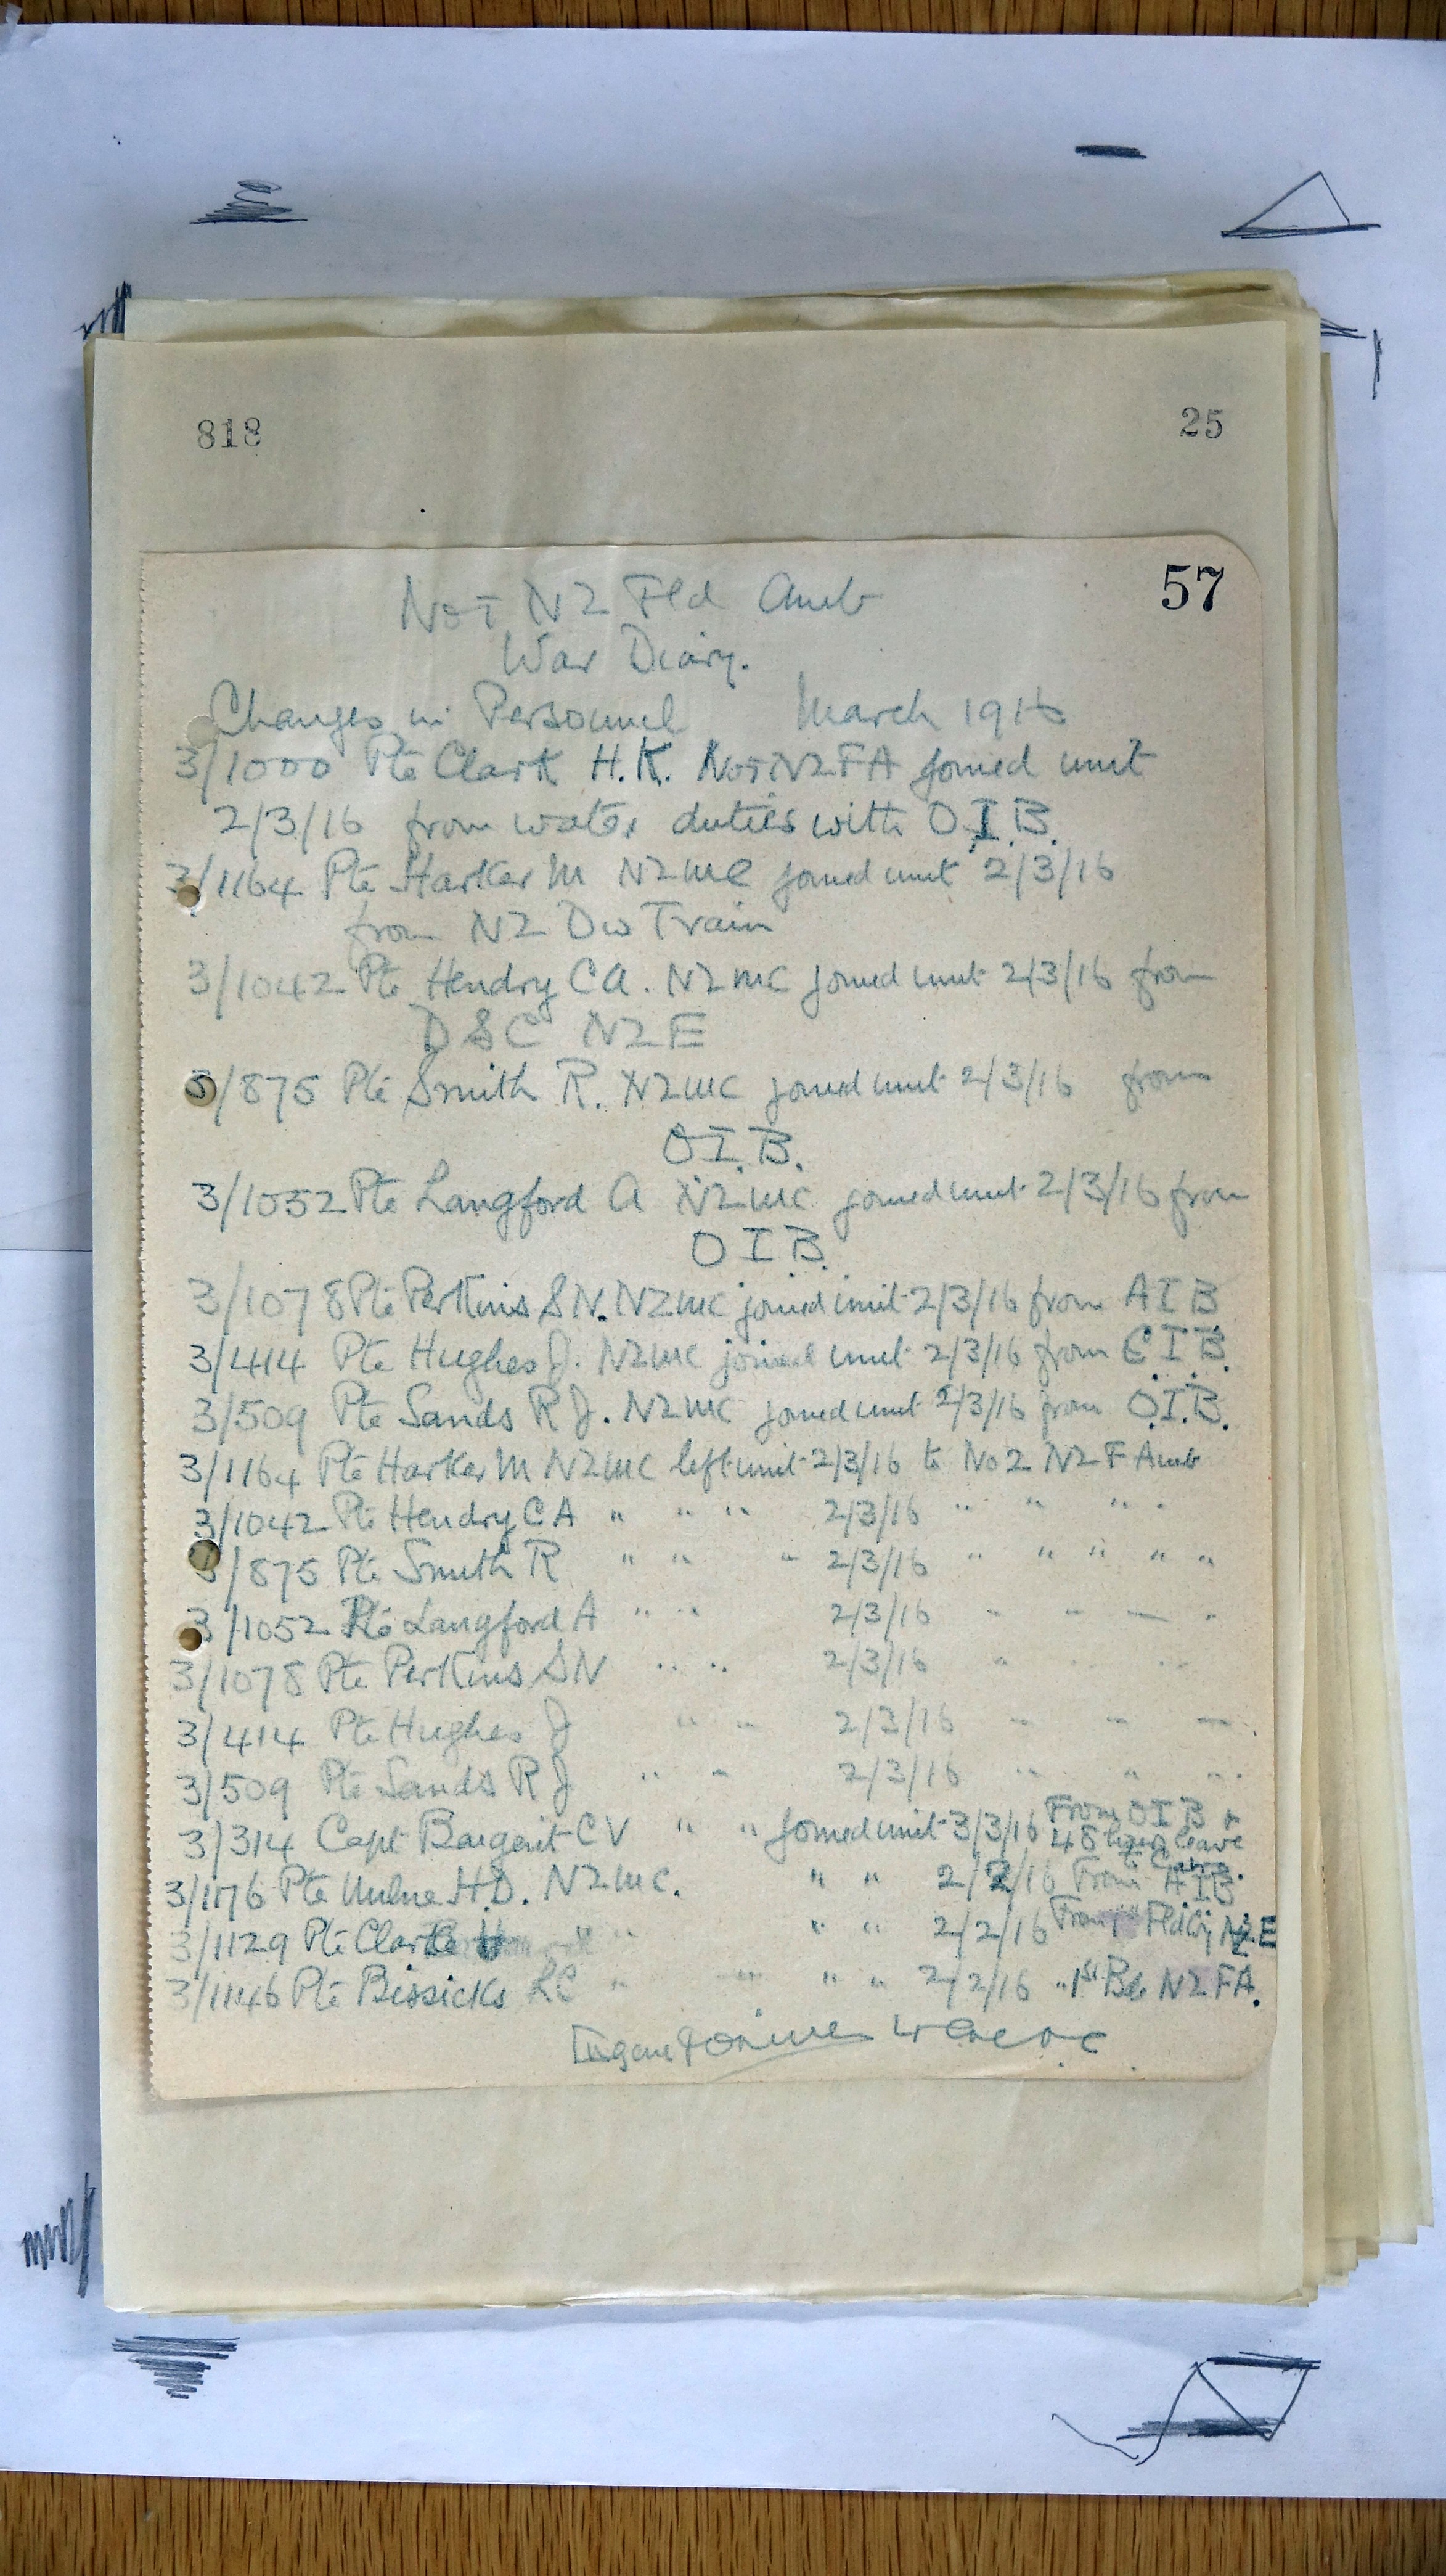 818 25
57
No I NZ Fld Amb
War Diary.
Changes in Personnel March 1916
3/1000 Pte Clark H.K. No I NZFA joined unit
2/3/16 from water duties with O.I.B.
3/1164 Pte Harker M NZMC joined unit 2/3/16
from NZ Div Train
3/1042 Pte Hendry CA. NZMC joined unit 2/3/16 from
DSC NZE
3/875 Pte Smith R. NZMC joined unit 2/3/16 from
O.I.B.
3/1052 Pte Langford A NZMC joined unit 2/3/16 from
O I B.
3/1078 Pte Perkins SN. NZMC joined unit 2/3/16 from A I B
3/414 Pte Hughes J. NZMC joined unit 2/3/16 from C.I.B.
3/509 Pte Sands R J. NZMC joined unit 2/3/16 from O.I.B.
3/1164 Pte Harker M NZMC left unit 2/3/16 to No 2 NZ F Amb
3/1042 Pte Hendry C A " " " 2/3/16 " " " "
3/875 Pte Smith R " " " 2/3/16 " " " " "
3/1052 Pte Langford A " " 2/3/16 " " " "
3/1078 Pte Perkins SN " " 2/3/16 " " "
3/414 Pte Hughes J " " 2/3/16 " " "
3/509 Pte Sands R J " " 2/3/16 " " "
3/314 Capt Bargerit CV " " joined unit 3/3/16 From OIB &
48 hours leave
to Cairo.
3/1176 Pte Milne H.D. NZMC. " " 2/2/16 From A.I.B
3/1129 Pte Clark " " " " 2/2/16 From Fld Coy NZE
3/1146 Pte Bissicks LC " " " " 2/2/16 " 1st Bde NZFA.